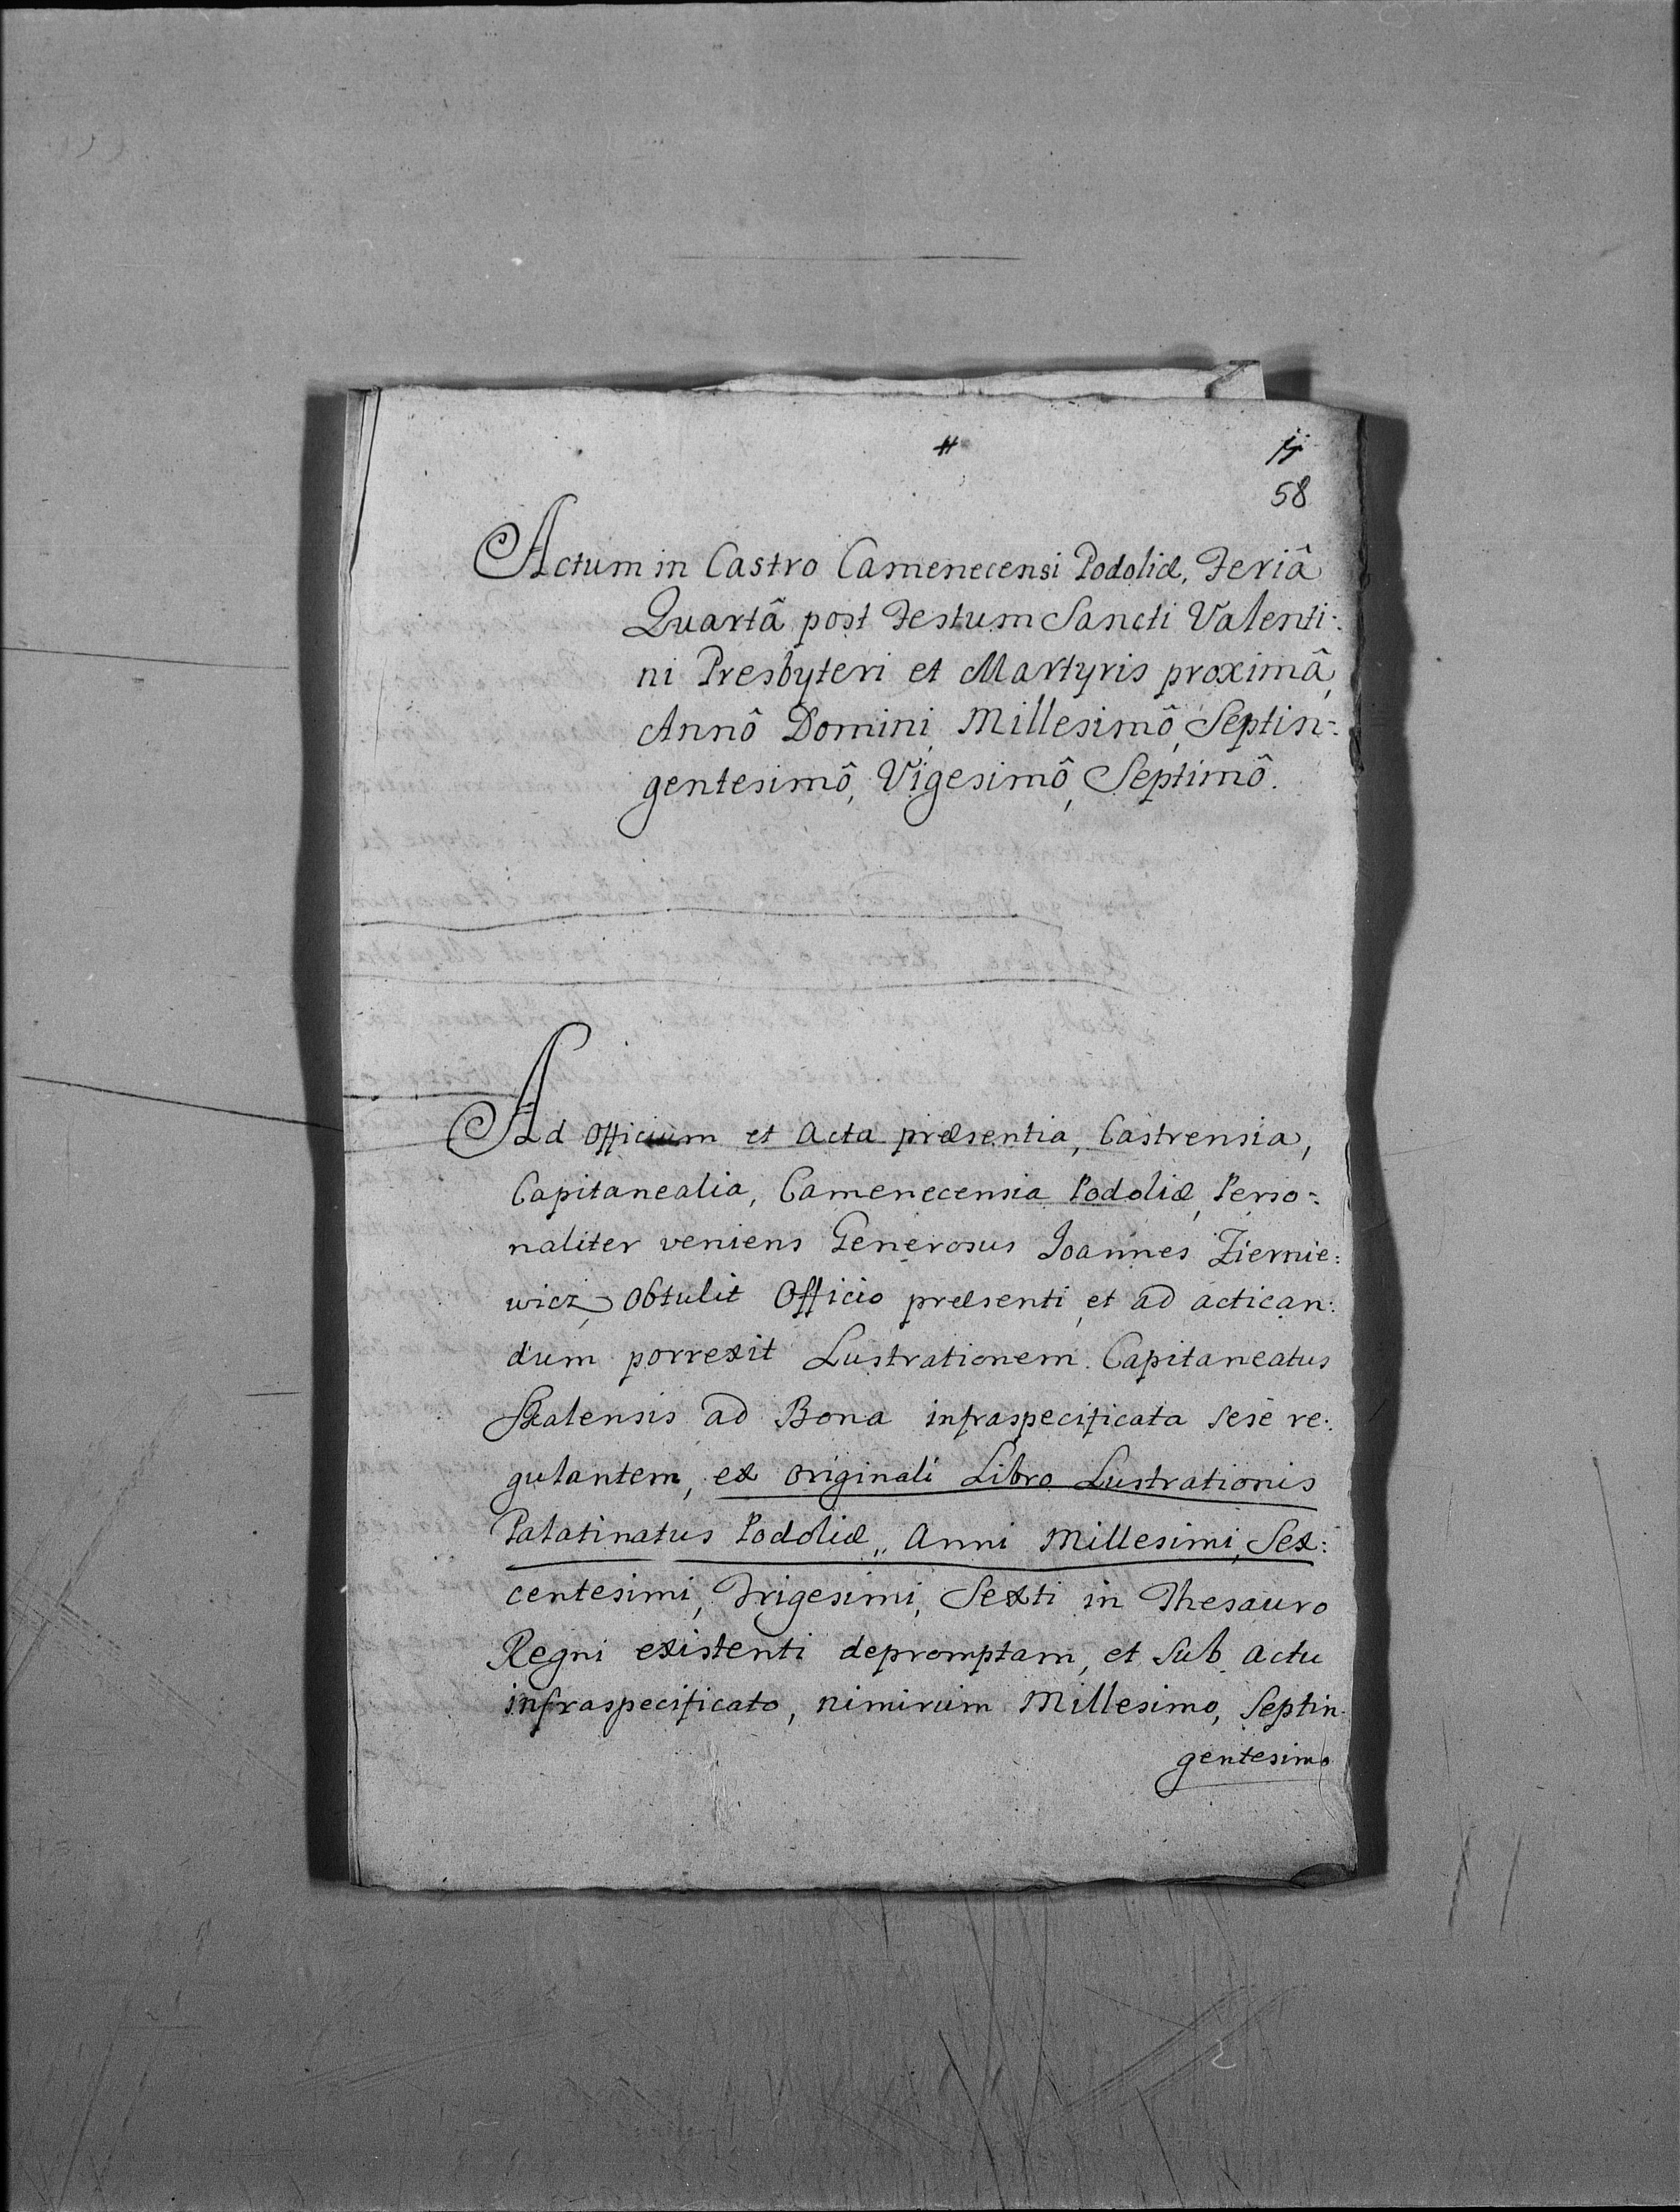 58
Actum in Castro Camenecensi Podoliæ, Feriâ
Quartâ post Festum Sancti Valenti:
ni Presbyteri et Martyris proximâ,
Annô Domini, Millesimô, Septin:
gentesimô, Vigesimô, Septimô.
Ad Officium et Acta præsentia, Castrensia,
Capitanealia, Camenecensia Podoliæ, Perso:
naliter veniens Generosus Joannes Ziernie:
wicz, obtulit Officio præsenti, et ad actican:
dum porrexit Lustrationem Capitaneatus
Skalensis ad Bona infraspecificata sese re:
gulantem, ex originali Libro Lustrationis
Palatinatus Podoliæ,, Anni Millesimi, Sex:
centesimi, Trigesimi, Sexti in Thesauro
Regni existenti depromptam, et sub actu
infraspecificato, nimirum Millesimo, Septin:
gentesimo